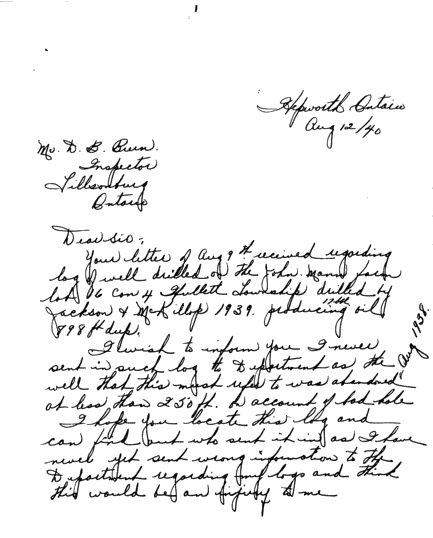 Hepworth Ontario
Aug 12/40
Mr. D. B.
Inspector
Tillsonburg
Ontario
Dear sir:,
Your letter of Aug 9th received regarding
log of well drilled on the John. Mann farm
lot 16 Con 4 Hullett Township drilled by
Jackson & McKillop 1939. producing oil
898 ft dep.
I wish to inform you I never
sent in such log to Department as the
well that this must refer to was abandoned
at less than 250 ft. account of bad hole
I hope you locate this log and
can find out who sent it in as I have
never yet sent wrong information to the
Department regarding my logs and think
this would be an injury to me
Aug 1938.